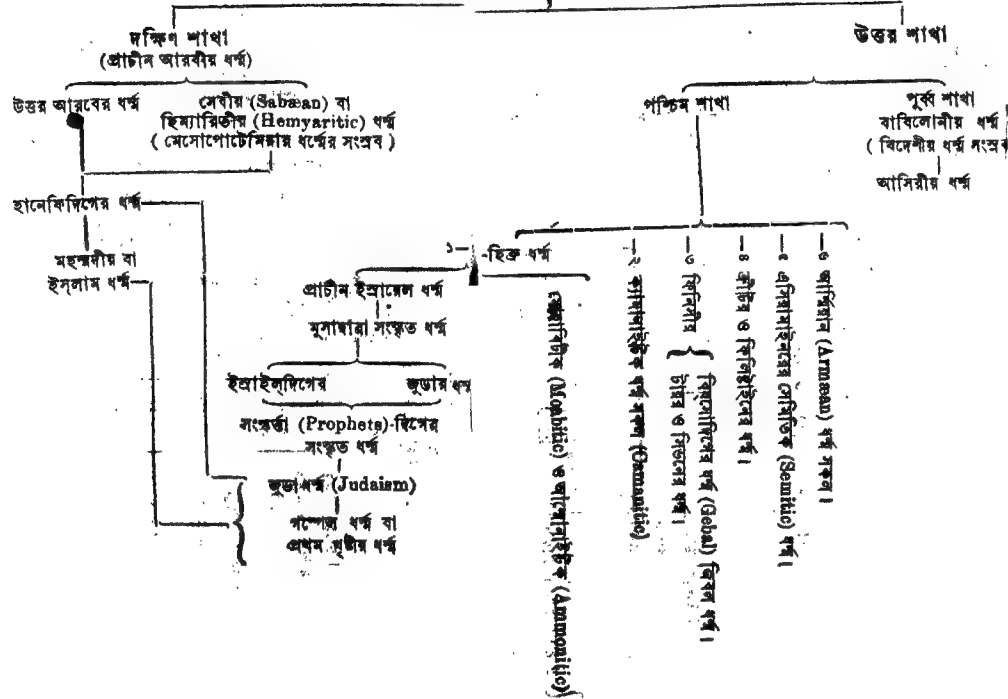 দক্ষিণ শাখা
(প্রাচীন আরবীয় ধর্ম্ম)
উত্তর শাখা
উত্তর আরবের ধর্ম্ম
সেবীয় (Sabæan) বা
হিম্যারিতীয় (Hemyaritic) ধর্ম্ম
( মেসোপোটেমিয়ার ধর্ম্মের সংস্রব )
পশ্চিম শাখা
পূর্ব্ব শাখা
বাবিলোনীয় ধর্ম্ম
( বিদেশীয় ধর্ম্ম সংস্রব
আসিরীয় ধর্ম্ম
হানেফিদিগের ধর্ম্ম
মহম্মদীয় বা
ইস্‌লাম ধর্ম্ম
১—
-হিব্রু ধর্ম্ম
প্রাচীন ইস্রায়েল ধর্ম্ম
মুসাদ্বারা সংস্কৃত ধর্ম্ম
ইস্রাইল্‌দিগের
জুডার ধর্ম্ম
সংস্কর্ত্তা (Prophets)-দিগের
সংস্কৃত ধর্ম্ম
জুডাধর্ম্ম (Judaism)
গস্পেল ধর্ম্ম বা
প্রথম খৃষ্টীয় ধর্ম্ম
(Moabitic) ও আম্মোনাইটিক (Ammonitic)
—২ ক্যানানাইটিক ধর্ম্ম সকল (Canaanitic)
—৩ ফিনিসীয়
গিবলোদিগের ধর্ম্ম (Gebal) জিবল ধর্ম্ম ।
টায়র ও সিডনের ধর্ম্ম ।
—৪ ক্রীটীয় ও ফিলিষ্টাইনের ধর্ম্ম ।
—৫ এসিয়ামাইনরের সেমিতিক (Semitic) ধর্ম্ম ।
—৬ আর্ম্মিয়ান (Armæan) ধর্ম্ম সকল ।